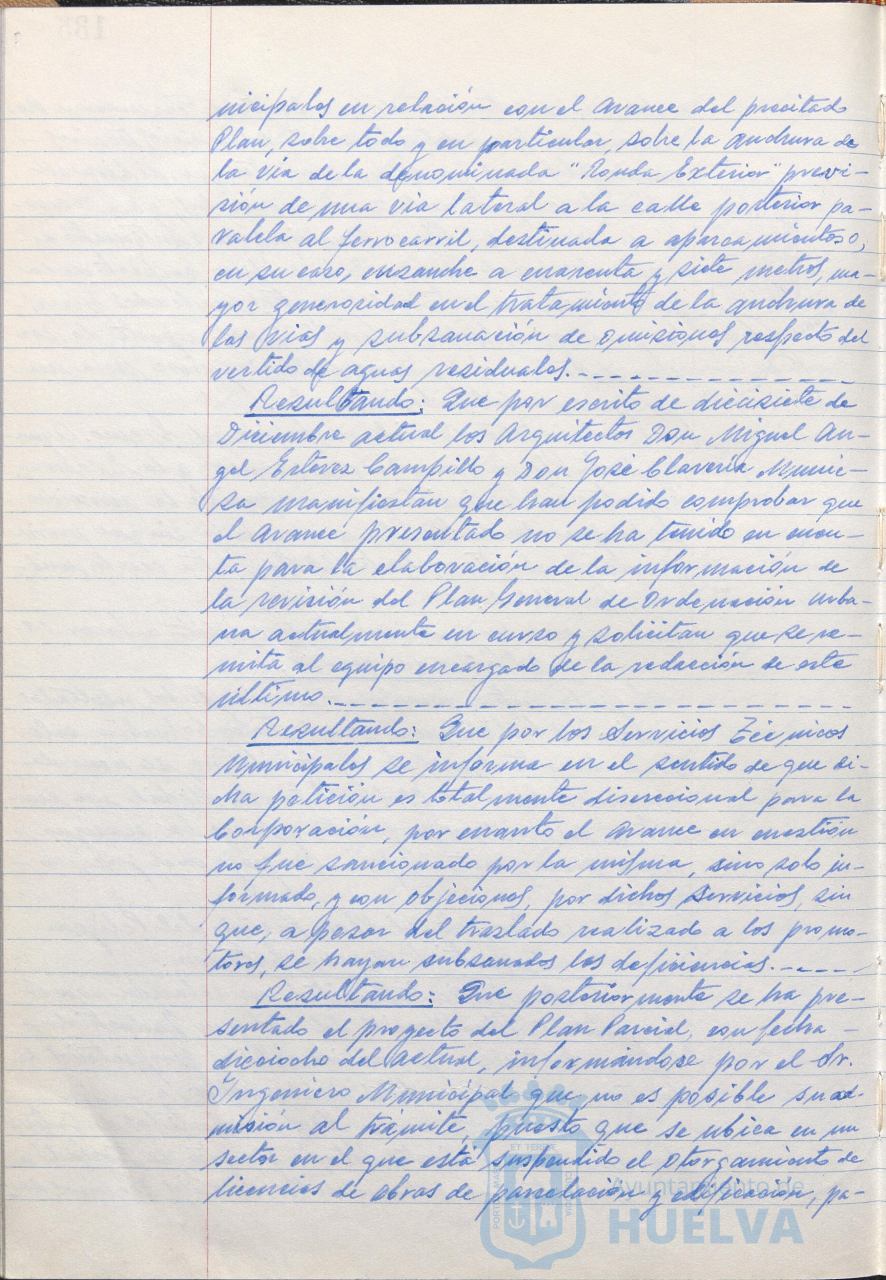 nicipales en relación con el avance del precitado
Plan, sobre todo y en particular, sobre la anchura de
la vía de la denominada "Ronda Exterior" previ-
sión de una via lateral a la calle posterior pa-
ralela al ferrocarril, destinada a aparcamientos o,
en su caso, ensanche a cuarenta y siete metros, ma-
yor generosidad en el tratamiento de la anchura de
las vias y subsanación de omisiones respecto del
vertido de aguas residuales.
Resultando: Que por escrito de diecisiete de
Diciembre actual los Arquitectos Don Miguel An-
gel Estevez Campillo y Don José Claveria Munie-
sa manifiestan que han podido comprobar que
el avance presentado no se ha tenido en cuen-
ta para la elaboración de la información de
la revisión del Plan General de Ordenación urba-
na actualmente en curso y solicitan que se re-
mita al equipo encargado de la redacción de este
último.
Resultando: Que por los Servicios Técnicos
Municipales se informa en el sentido de que di-
cha petición es totalmente discrecional para la
Corporación, por cuanto el avance en cuestión
no fue sancionado por la misma, sino solo in-
formado, y con objeciones, por dichos Servicios, sin
que, a pesar del traslado realizado a los promo-
tores, se hayan subsanados las deficiencias.
Resultando: Que posteriormente se ha pre-
sentado el proyecto del Plan Parcial, con fecha
dieciocho del actual, informandose por el Sr.
Ingeniero Municipal que, no es posible su ad-
misión al trámite, puesto que se ubica en un
sector en el que está suspendido el otorgamiento de
licencias de obras de parcelación y edificación, pa-
Ayuntamiento de
HUELVA